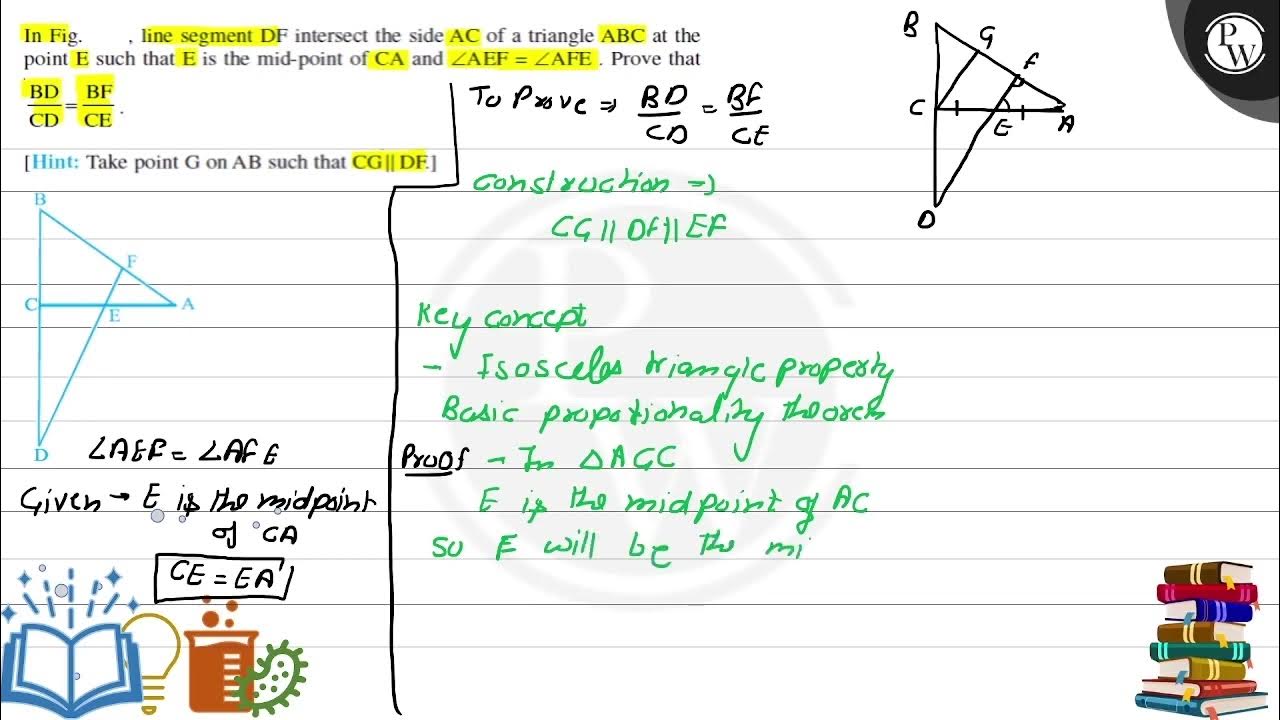 In Fig. , line segment DF intersect the side AC of a triangle ABC at the
point E such that E is the mid-point of CA and ∠AEF = ∠AFE . Prove that
BD/CD = BF/CE .
[Hint: Take point G on AB such that CG || DF.]
B
F
C
E
A
D
∠AEF = ∠AFE
Given → E is the midpoint
of CA
CE = EA
To Prove ⇒ BD/CD = BF/CE
Construction ⇒
CG || DF || EF
Key concept
- Isosceles triangle property
Basic proportionality theorem
Proof - In △AGC
E is the midpoint of AC
so F will be the mi
B
G
F
C
E
A
D
P
W
P
W